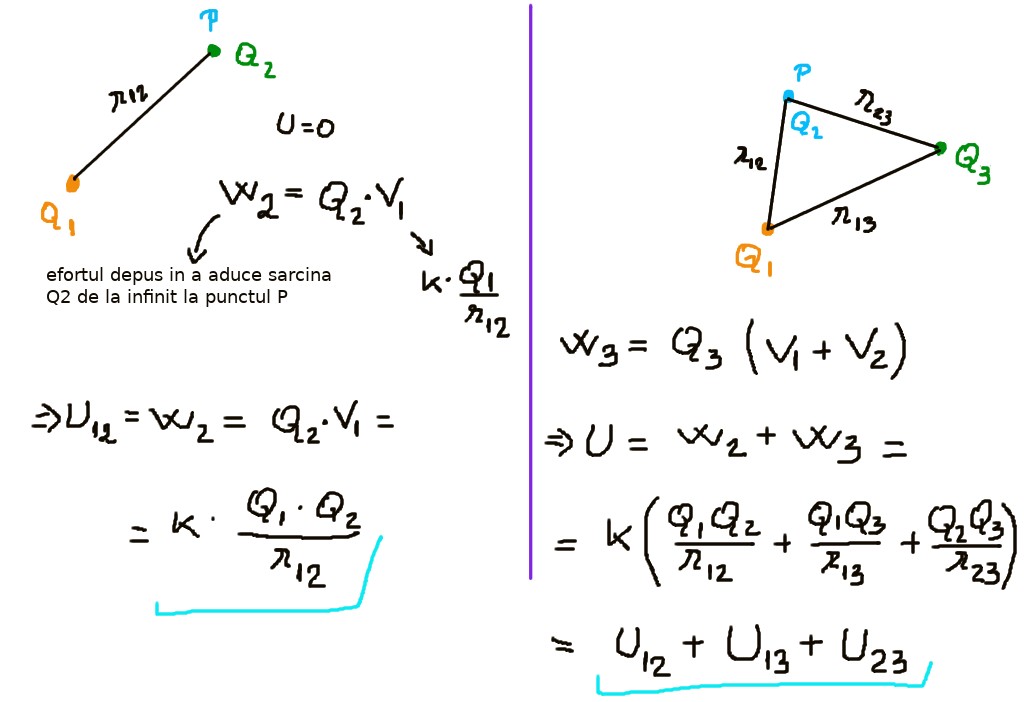 P
Q₂
r₁₂
U=0
Q₁
W₂ = Q₂·V₁
k·Q₁/r₁₂
efortul depus in a aduce sarcina
Q2 de la infinit la punctul P
⇒U₁₂ = W₂ = Q₂·V₁ =
= k · Q₁·Q₂/r₁₂
P
r₂₃
Q₂
r₁₂
Q₃
r₁₃
Q₁
W₃ = Q₃ (V₁ + V₂)
⇒ U = W₂ + W₃ =
= k(Q₁Q₂/r₁₂ + Q₁Q₃/r₁₃ + Q₂Q₃/r₂₃)
= U₁₂ + U₁₃ + U₂₃